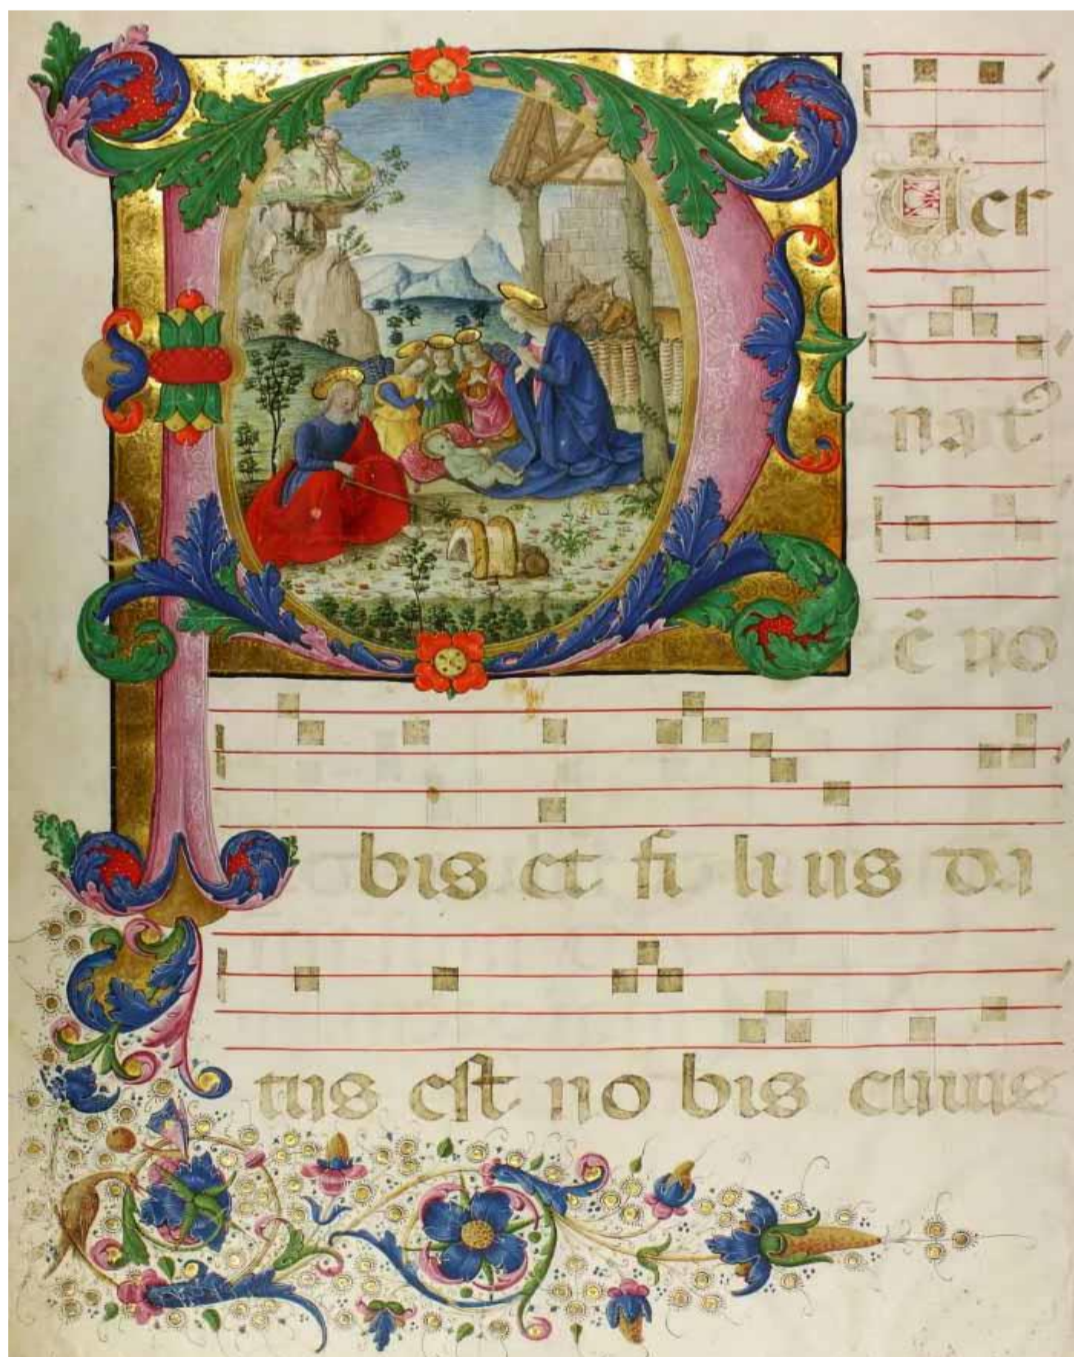 PUer
na tꝰ
ē no
bis et fi li us da
tus est no bis cuius